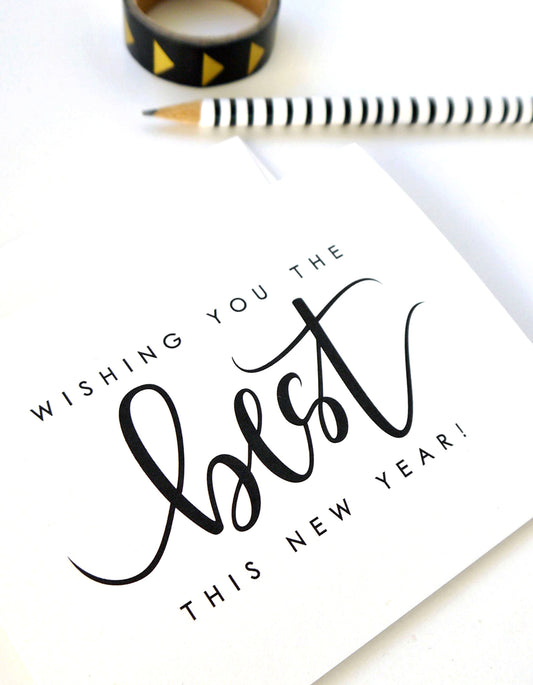 WISHING YOU THE
best
THIS NEW YEAR!